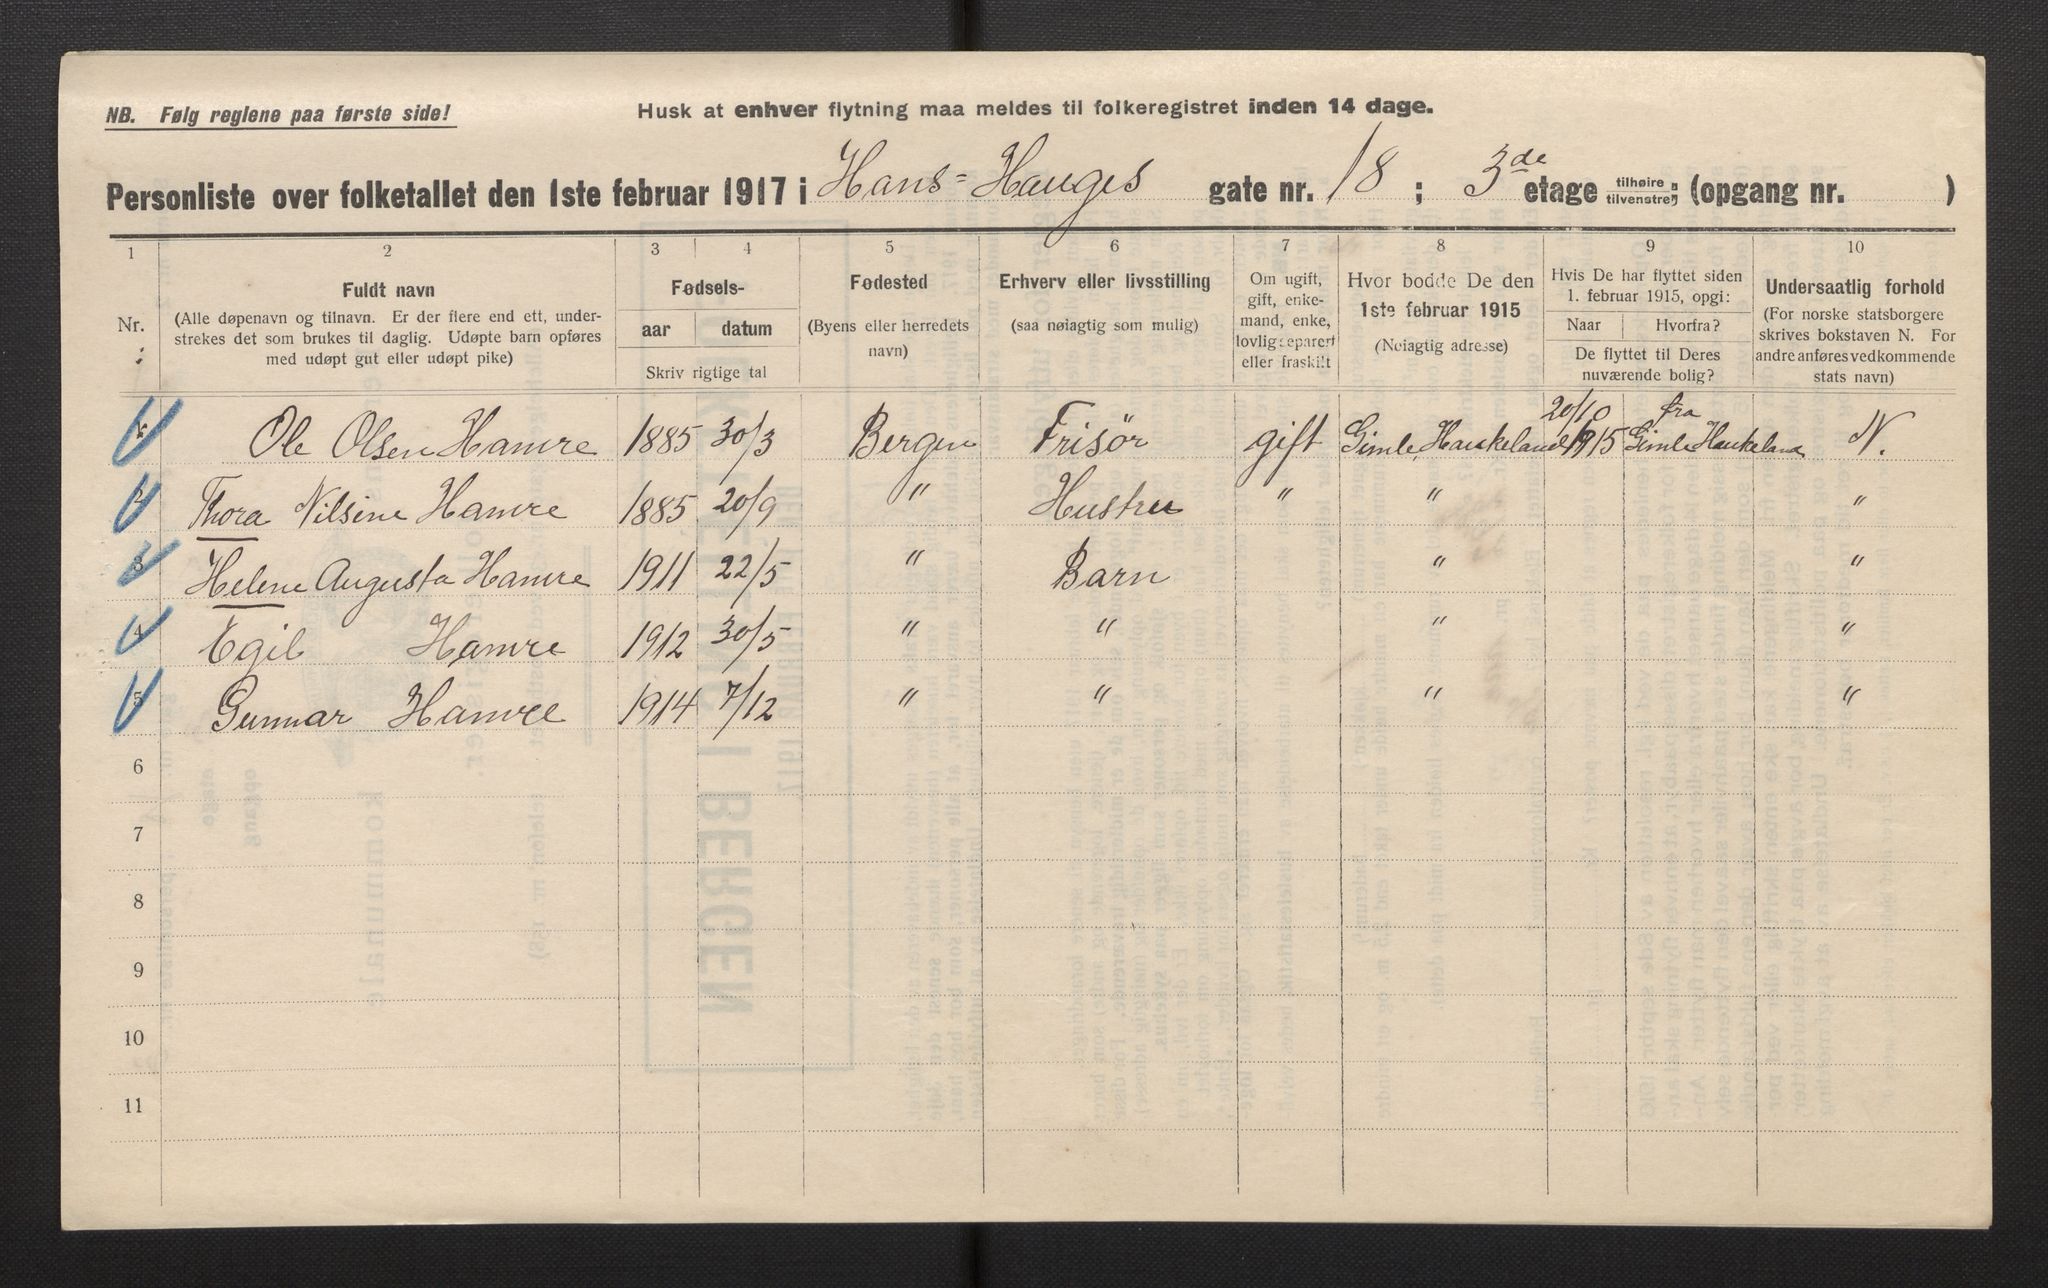 NB. Følg reglene paa første side!
Husk at enhver flytning maa meldes til folkeregistret inden 14 dage.
Personliste over folketallet den 1ste februar 1917 i Hans=Hauges gate nr. 18 ; 3de etage tilhøire tilvenstre; (opgang nr. )
1 2 3 4 5 6 7 8 9 10
Nr.
Fuldt navn
(Alle døpenavn og tilnavn. Er der flere end ett, under-
strekes det som brukes til daglig. Udøpte barn opføres
med udøpt gut eller udøpt pike)
Fødsels-
aar datum
Skriv rigtige tal
Fødested
(Byens eller herredets
navn)
Erhverv eller livsstilling
(saa nøiagtig som mulig)
Om ugift,
gift, enke-
mand, enke,
lovlig separert
eller fraskilt
Hvor bodde De den
1ste februar 1915
(Nøiagtig adresse)
Hvis De har flyttet siden
1. februar 1915, opgi:
Naar Hvorfra?
De flyttet til Deres
nuværende bolig?
Undersaatlig forhold
(For norske statsborgere
skrives bokstaven N. For
andre anføres vedkommende
stats navn)
1 Ole Olsen Hamre 1885 30/3 Bergen Frisör gift Gimle, Haukeland 20/10 1915 fra Gimle Haukeland N.
2 Thora Nilsine Hamre 1885 20/9 " Hustru " " "
3 Helene Augusta Hamre 1911 22/5 " Barn " "
4 Egil Hamre 1912 30/5 " " " "
5 Gunnar Hamre 1914 7/12 " " " "
6
7
8
9
10
11